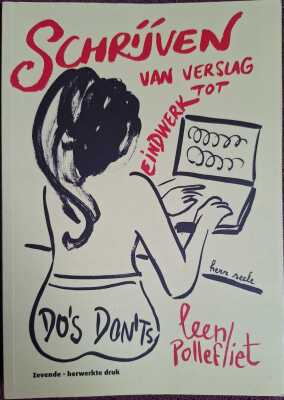 SCHRIJVEN
VAN VERSLAG
TOT
EINDWERK
herr seele
DO'S DON'TS
leen
Pollefliet
Zevende - herwerkte druk